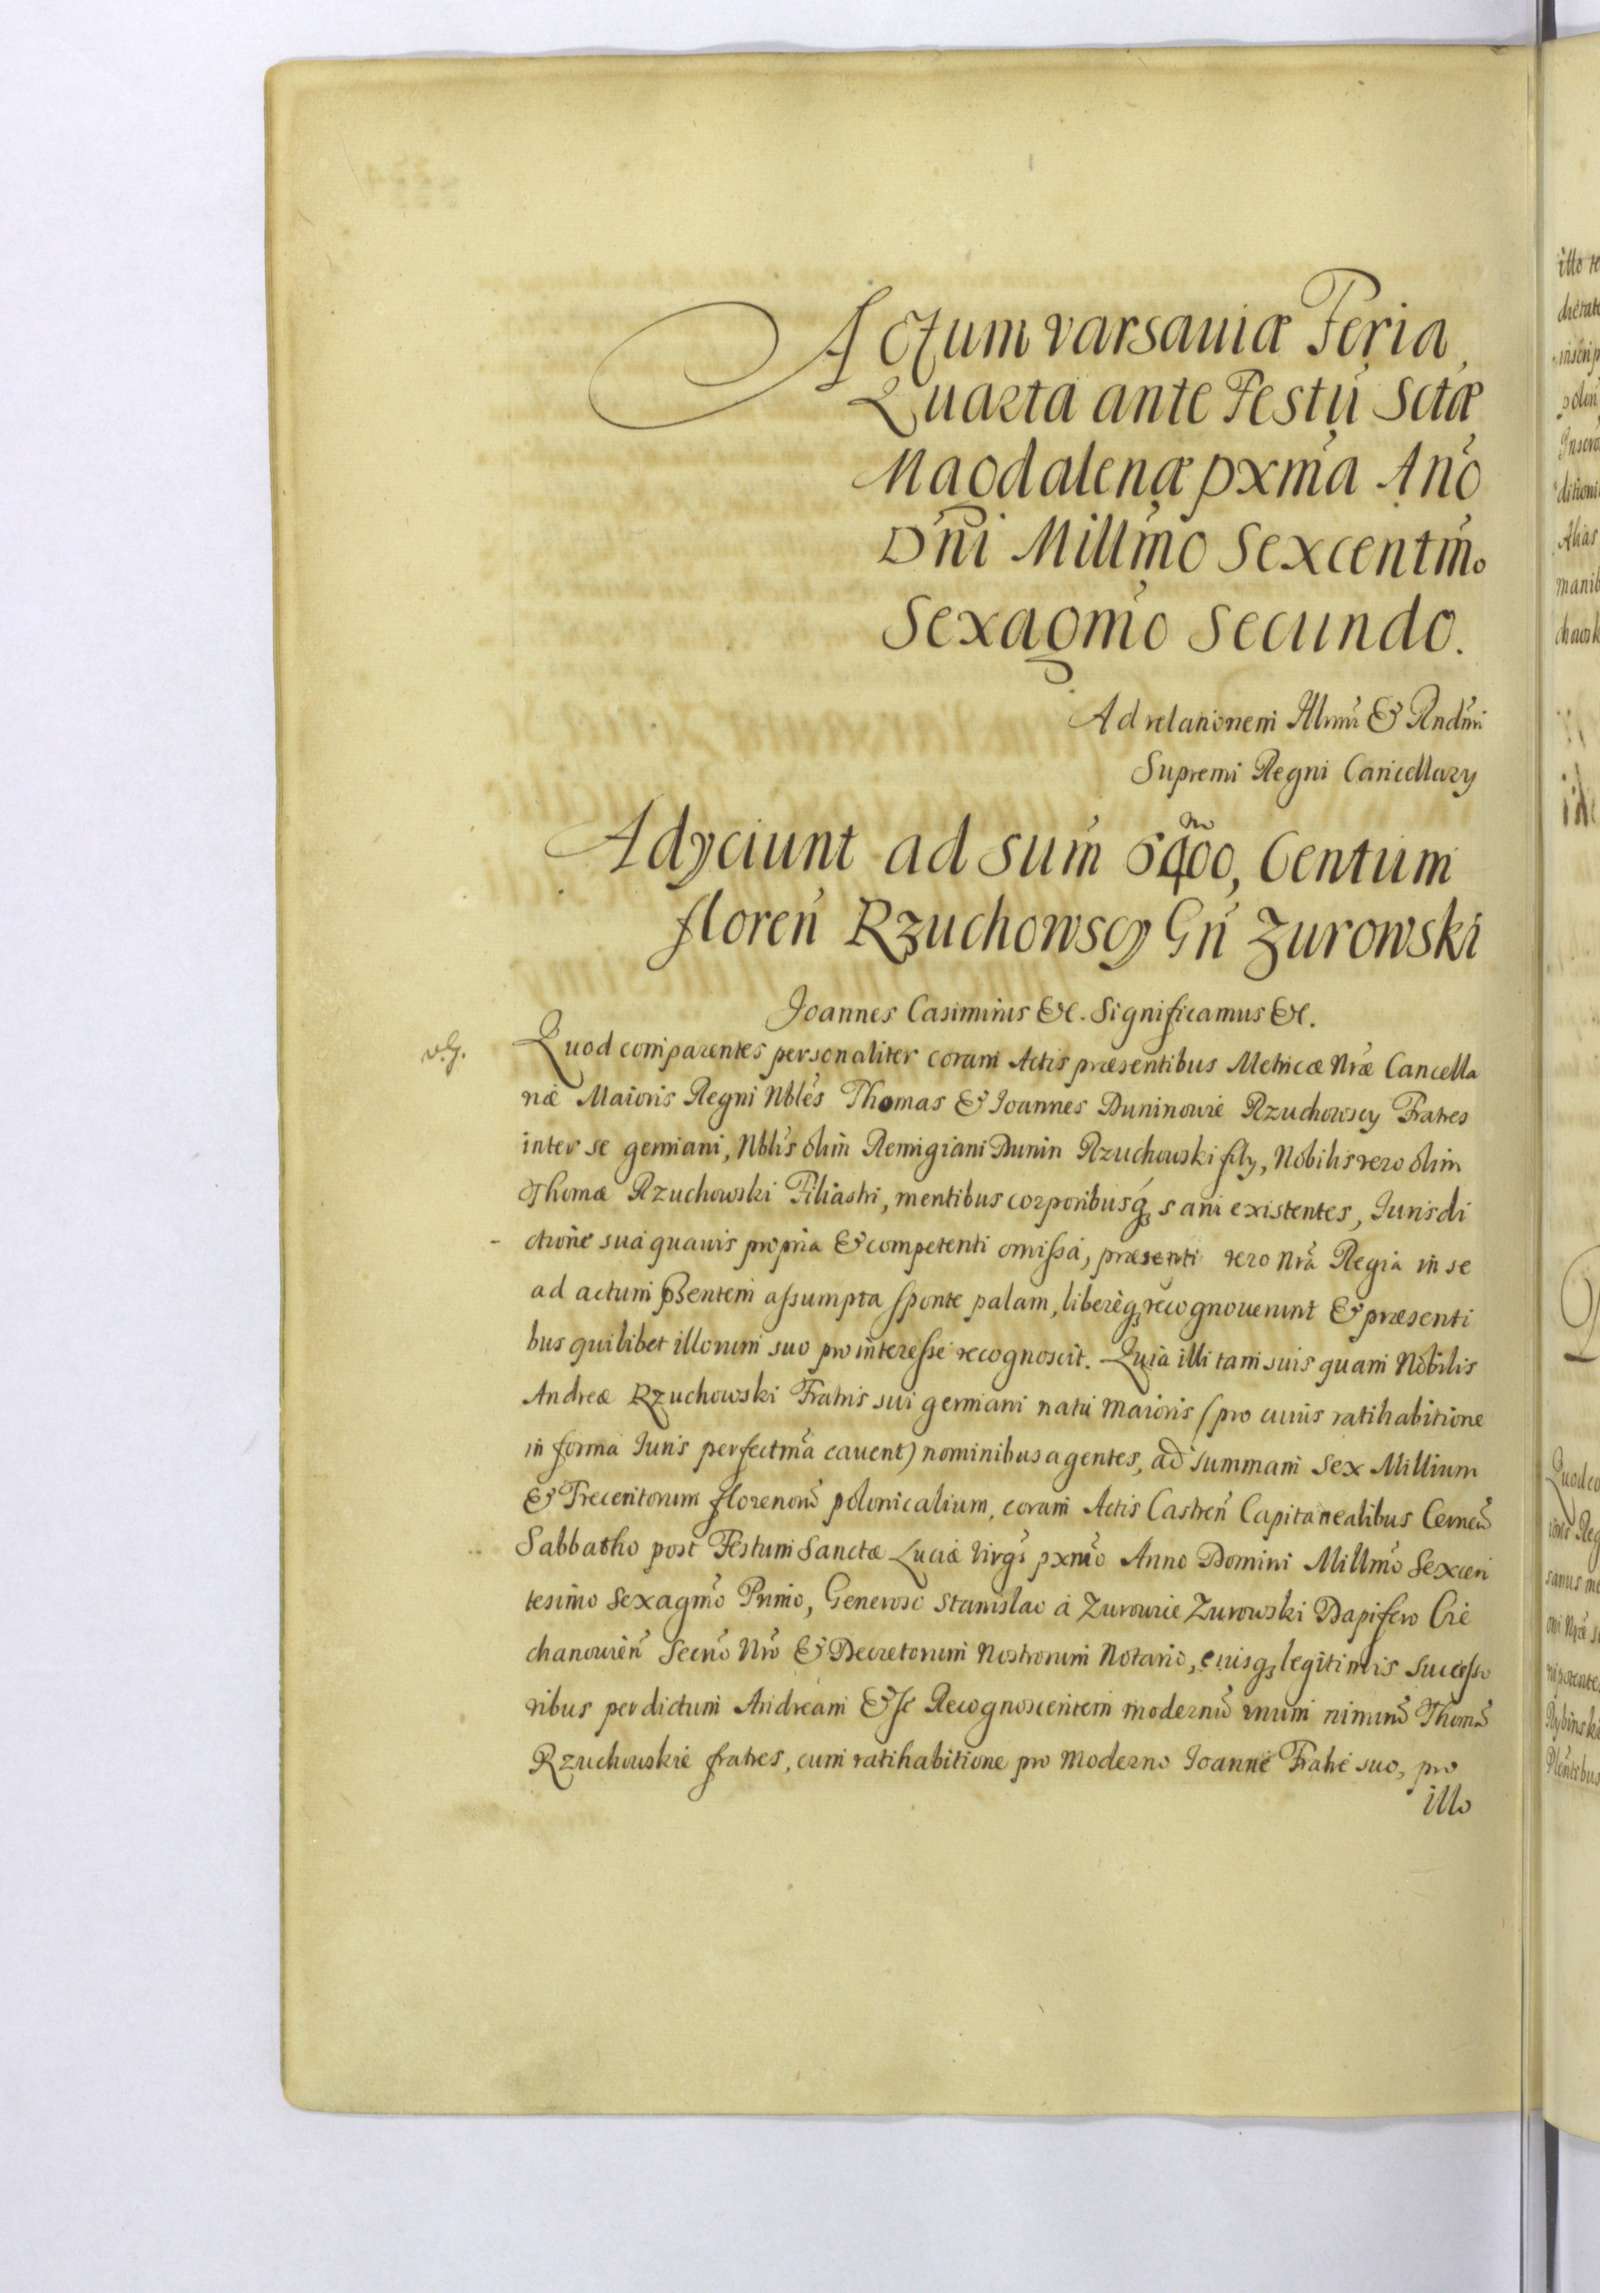 Actum Varsauiæ Feria
Quarta ante Festũ Sctæ
Magdalenæ pxma Ano
Dni Millmo Sexcentmo
Sexagmo Secundo.
Ad relationem Illmi & Rndmi
Supremi Regni Cancellary
Adyciunt ad sum̃ 6400, Centum
floreñ Rzuchowscy Gñ Zurowski
Joannes Casimirus &c. Significamus &c.
Quod comparentes personaliter coram Actis præsentibus Metricæ Nræ Cancella
riæ Maioris Regni Nbles Thomas & Joannes Duninowie Rzuchowscy Fratres
inter se germani, Nblis olim Remigiani Dunin Rzuchowski fily, Nobilis vero olim
Thomæ Rzuchowski Filiastri, mentibus corporibusq sani existentes, Jurisdi
ctione sua quauis propria & competenti omissa, præsenti vero Nra Regia in se
ad actum pṡentem assumpta sponte palam, libereq recognouerunt & præsenti
bus quilibet illorum suo pro interesse recognoscit. Quia illi tam suis quam Nobilis
Andreæ Rzuchowski Fratris sui germani natu maioris (pro cuius ratihabitione
in forma Juris perfectma cauent) nominibus agentes, ad summam Sex Millium
& Trecentorum florenorũ polonicalium, coram Actis Castreñ Capitanealibus
Sabbatho post Festum Sanctæ Luciæ Virgs pxmo Anno Domini Millmo Sexcen
tesimo Sexagmo Primo, Generoso Stanislao à Zurowie Zurowski Dapifero Cie
chanowieñ Secrio Nro & Decretorum Nostrorum Notario, eiusq legitimis Successo
ribus per dictum Andream & se Recognoscentem modernũ unum nimirũ Thomã
Rzuchowskie fratres, cum ratihabitione pro moderno Joanne Fratre suo, pro
illo